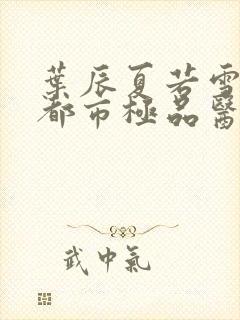 葉辰夏若雪
都市極品醫
武中氣